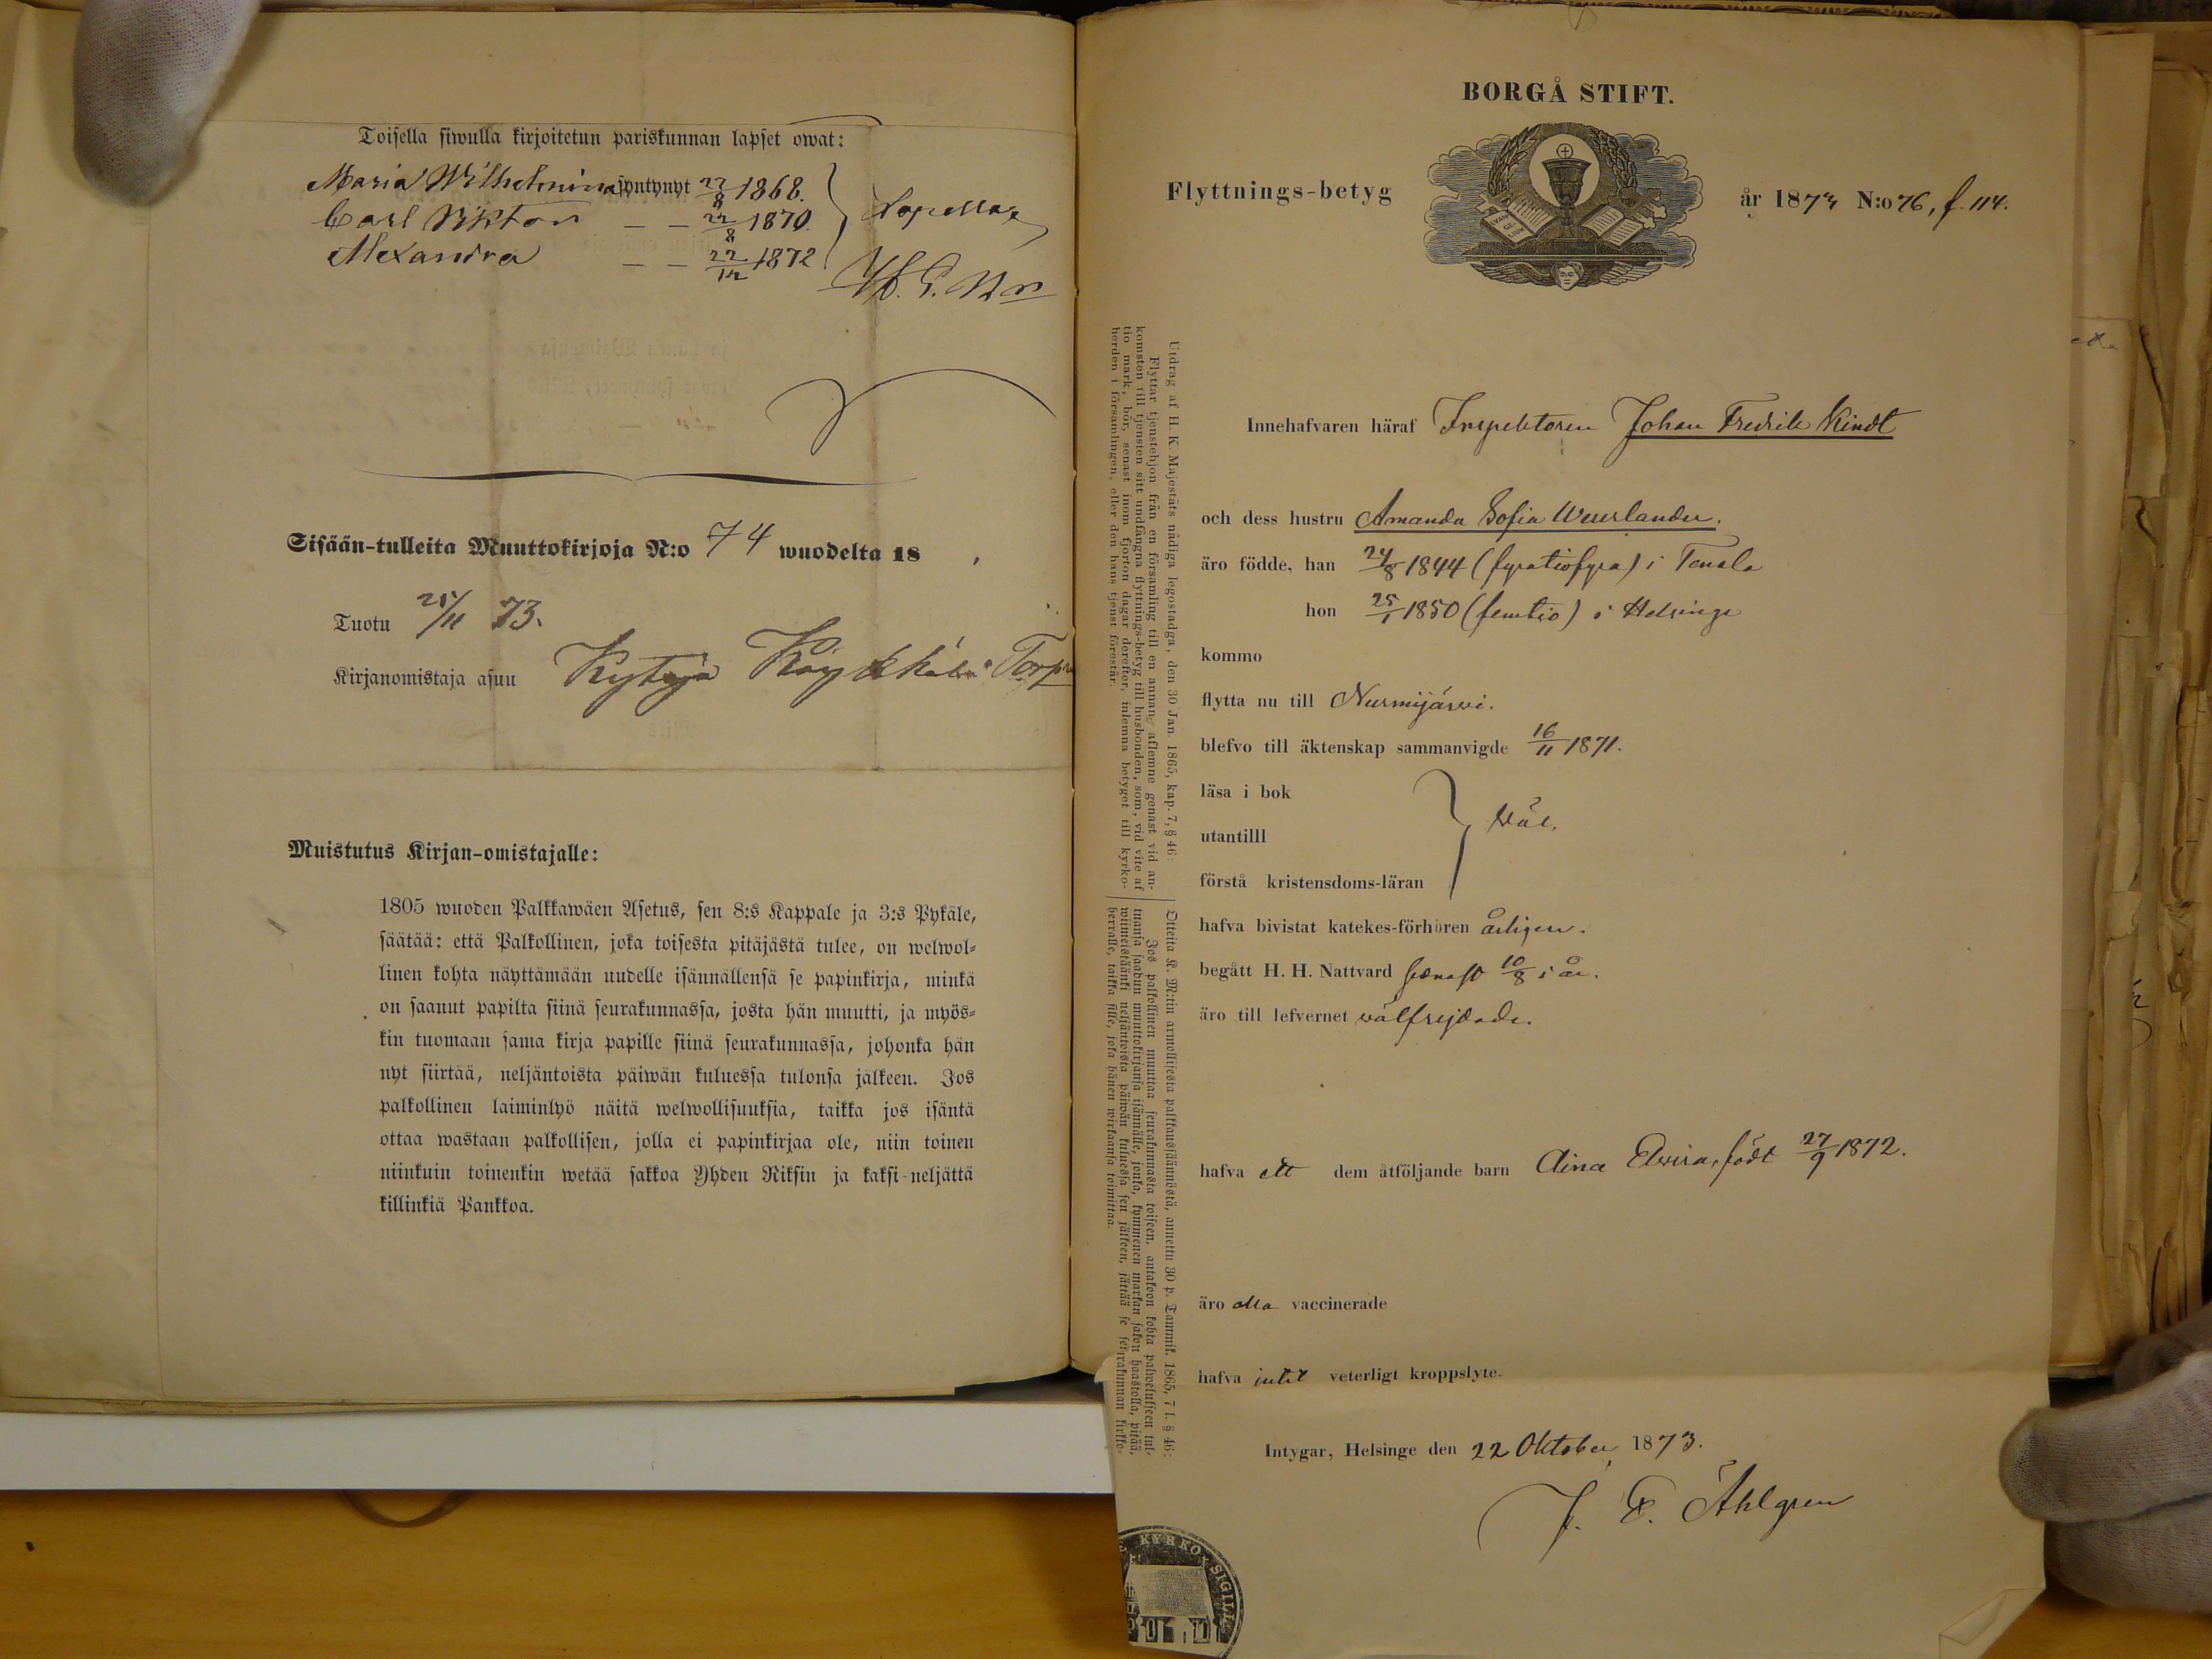 Toisella siwulla kirjoitetun pariskunnan lapset owat:
Maria Wilhelmina syntynyt 22/8 1868.
Carl Viktor — — 22/8 1870.
Alexandra — — 22/12 1872
Sisään-tulleita Muuttokirjoja N:o 74 wuodelta 18 .
Tuotu 25/11 73.
Kirjanomistaja asuu Kytäjä
Muistutus Kirjan-omistajalle:
1805 wuoden Palkkawäen Asetus, sen 8:s Kappale ja 3:s Pykäle,
säätää: että Palkollinen, joka toisesta pitäjästä tulee, on welwol-
linen kohta näyttämään uudelle isännällensä se papinkirja, minkä
on saanut papilta siinä seurakunnassa, josta hän muutti, ja myös-
kin tuomaan sama kirja papille siinä seurakunnassa, johonka hän
nyt siirtää, neljäntoista päiwän kuluessa tulonsa jälkeen. Jos
palkollinen laiminlyö näitä welwollisuuksia, taikka jos isäntä
ottaa wastaan palkollisen, jolla ei papinkirjaa ole, niin toinen
niinkuin toinenkin wetää sakkoa Yhden Riksin ja kaksi-neljättä
killinkiä Pankkoa.
BORGÅ STIFT.
Flyttnings-betyg
EVAN GE LIUM
år 1873 N:o 76, f. 114.
Innehafvaren häraf Inspektoren Johan Fredrik Kindt
och dess hustru Amanda Sofia Weurlander.
äro födde, han 24/8 1844 (fyratiofyra) i Tenala
hon 25/1 1850 (femtio) i Helsinge
kommo
flytta nu till Nurmijärvi.
blefvo till äktenskap sammanvigde 16/11 1871.
läsa i bok
utantilll
förstå kristensdoms-läran
väl.
hafva bivistat katekes-förhören årligen.
begått H. H. Nattvard senast 10/8 i år.
äro till lefvernet välfrejdade.
hafva ett dem åtföljande barn Aina Elvira, född 27/9 1872.
äro alla vaccinerade
hafva intet veterligt kroppslyte.
Intygar, Helsinge den 22 Oktober 1873.
J. E. Åhlgren
KYRKO SIGILL
Utdrag af H. K. Majestäts nådiga legostadga, den 30 Jan. 1865, kap. 7, § 46:
Flyttar tjenstehjon från en församling till en annan, aflemne genast vid an-
komsten till tjensten sitt undfångna flyttnings-betyg till husbonden, som, vid vite af
tio mark, bör, senast inom fjorton dagar derefter, inlemna betyget till kyrko-
herden i församlingen, eller den hans tjenst förestår.
Otteita K. M:tin armollisesta palkkaussäännöstä, annettu 30 p. Tammik. 1865, 7 l. § 46:
Jos palkollinen muuttaa seurakunnasta toiseen, antakoon kohta palwelukseen tul-
tuansa saadun muuttokirjansa isännälle, jonka, kymmenen markan sakon haastolla, pitää,
wiimeistäänki neljäntoista päiwän kuluessa sen jälkeen, jättää se seurakunnan kirkko-
herralle, taikka sille, joka hänen wirkaansa toimittaa.